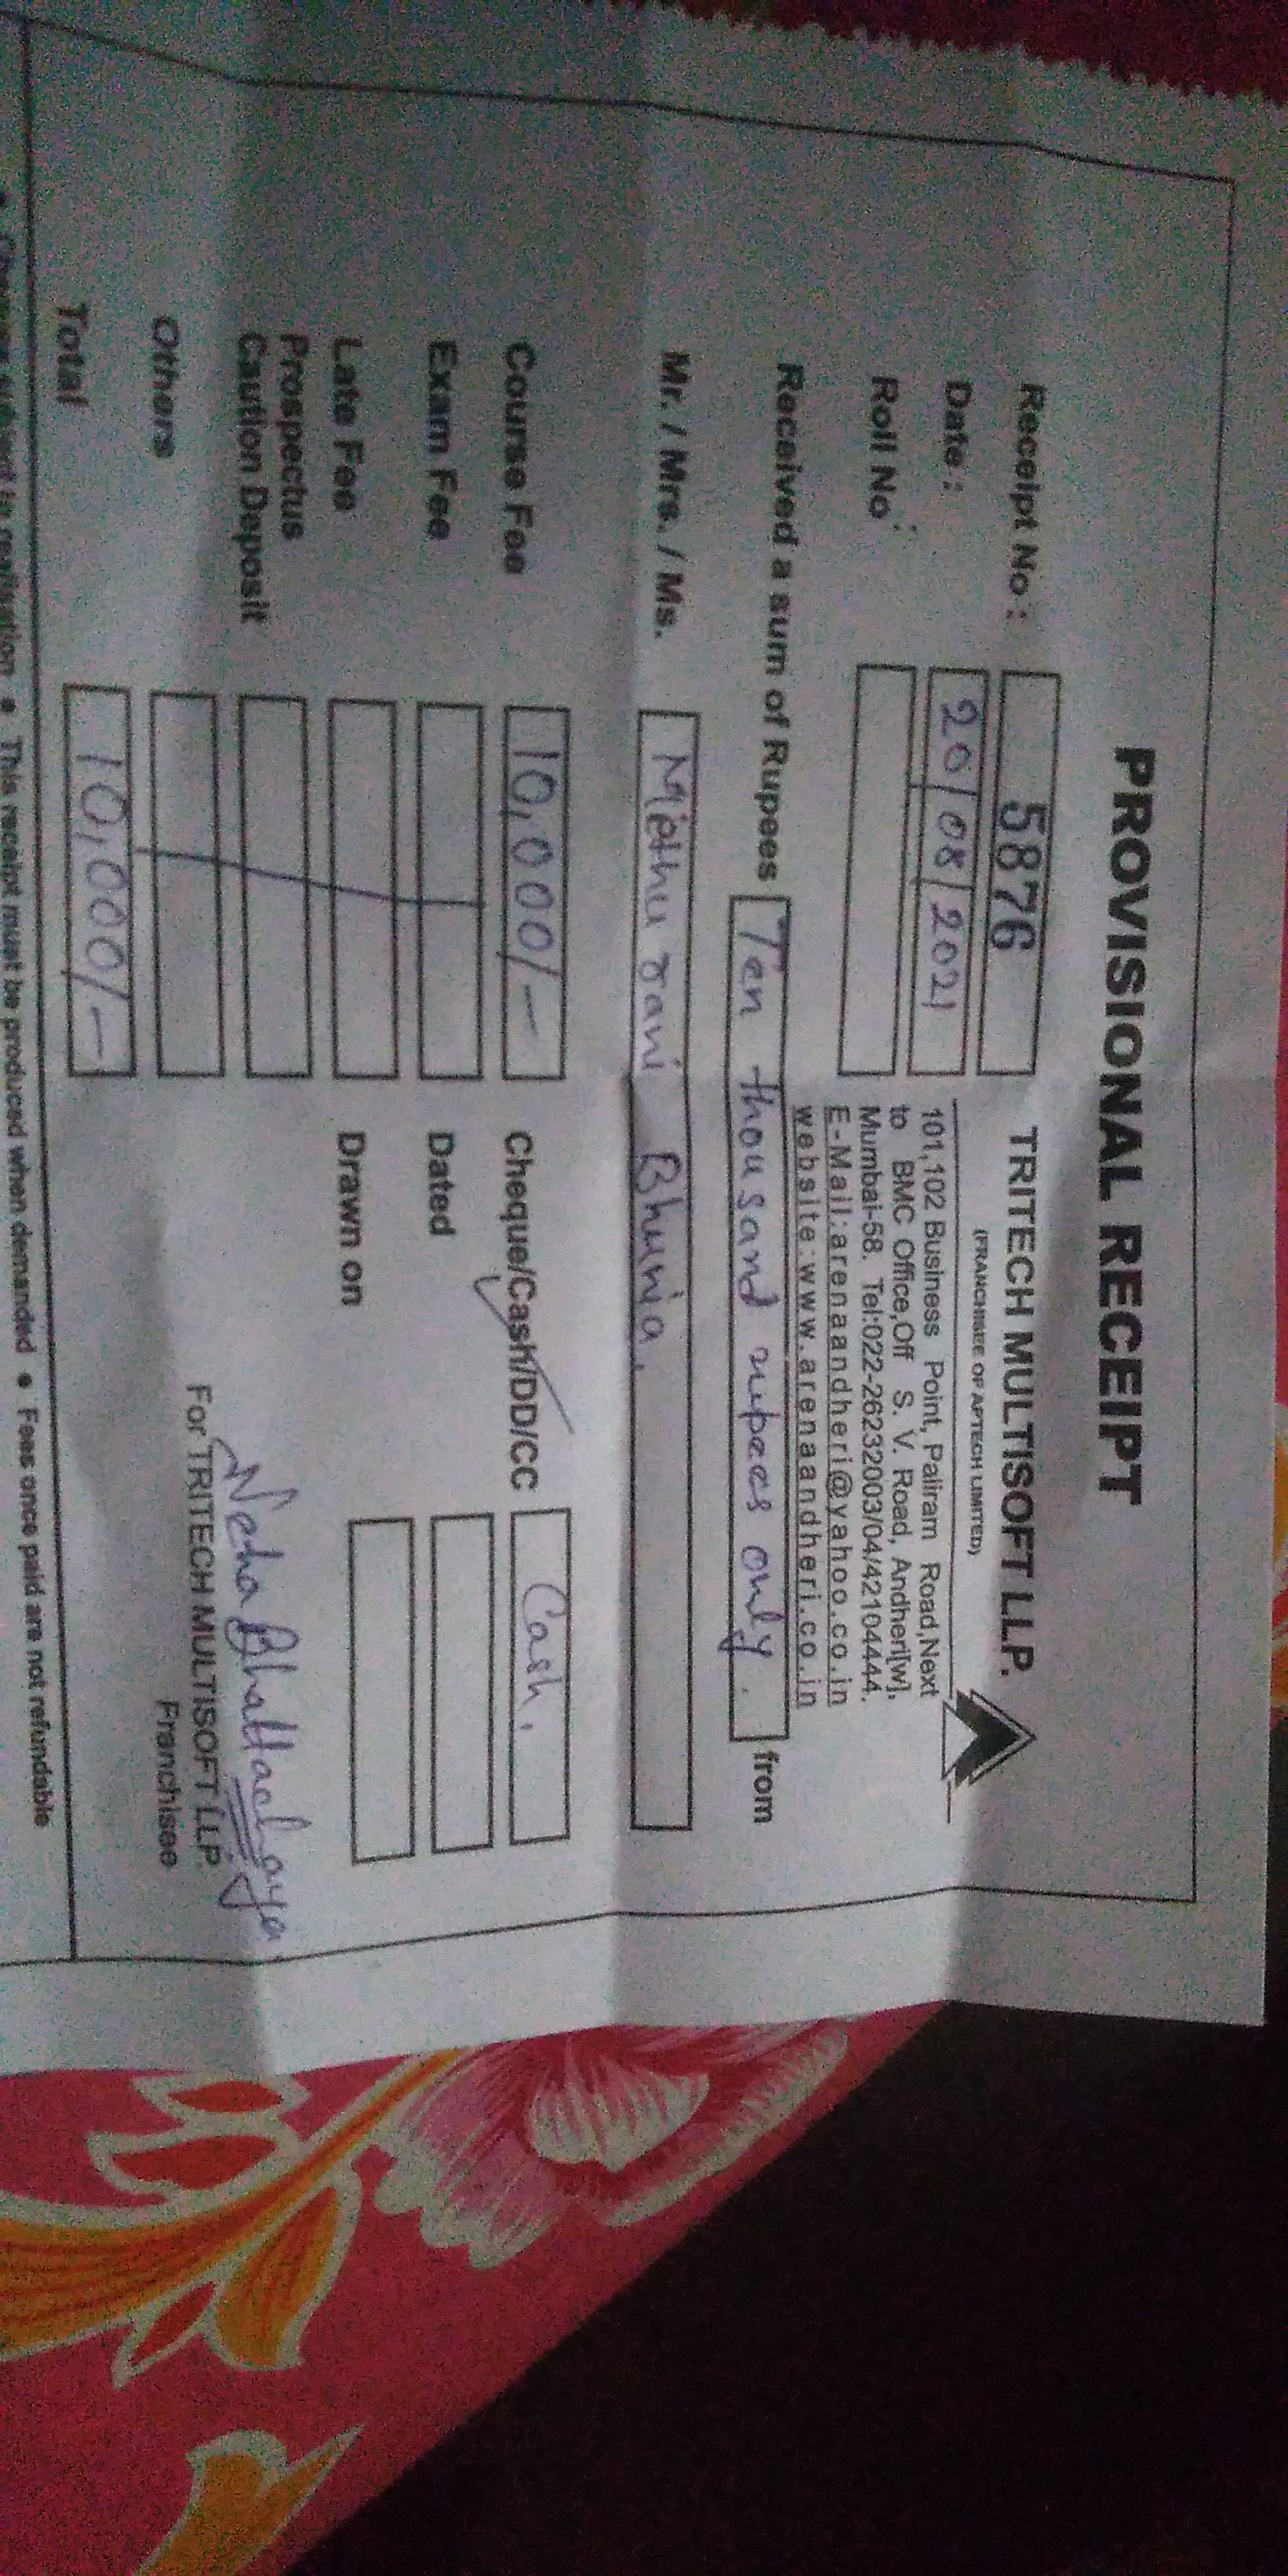 PROVISIONAL RECEIPT
TRITECH MULTISOFT LLP.
(FRANCHISEE OF APTECH LIMITED)
101,102 Business Point, Paliram Road,Next
to BMC Office,Off S. V. Road, Andheri[w],
Mumbai-58. Tel:022-26232003/04/42104444.
E-Mail:arenaandheri@yahoo.co.in
website:www.arenaandheri.co.in
Receipt No : 5876
Date : 20/08/2021
Roll No :
Received a sum of Rupees Ten thousand rupees only. from
Mr. / Mrs. / Ms. Mithu rani Bhunia.
Course Fee 10,000/- Cheque/Cash/DD/CC Cash.
Exam Fee Dated
Late Fee Drawn on
Prospectus
Caution Deposit
Others
Total 10,000/-
Neha Bhattacharya
For TRITECH MULTISOFT LLP.
Franchisee
• This receipt must be produced when demanded • Fees once paid are not refundable